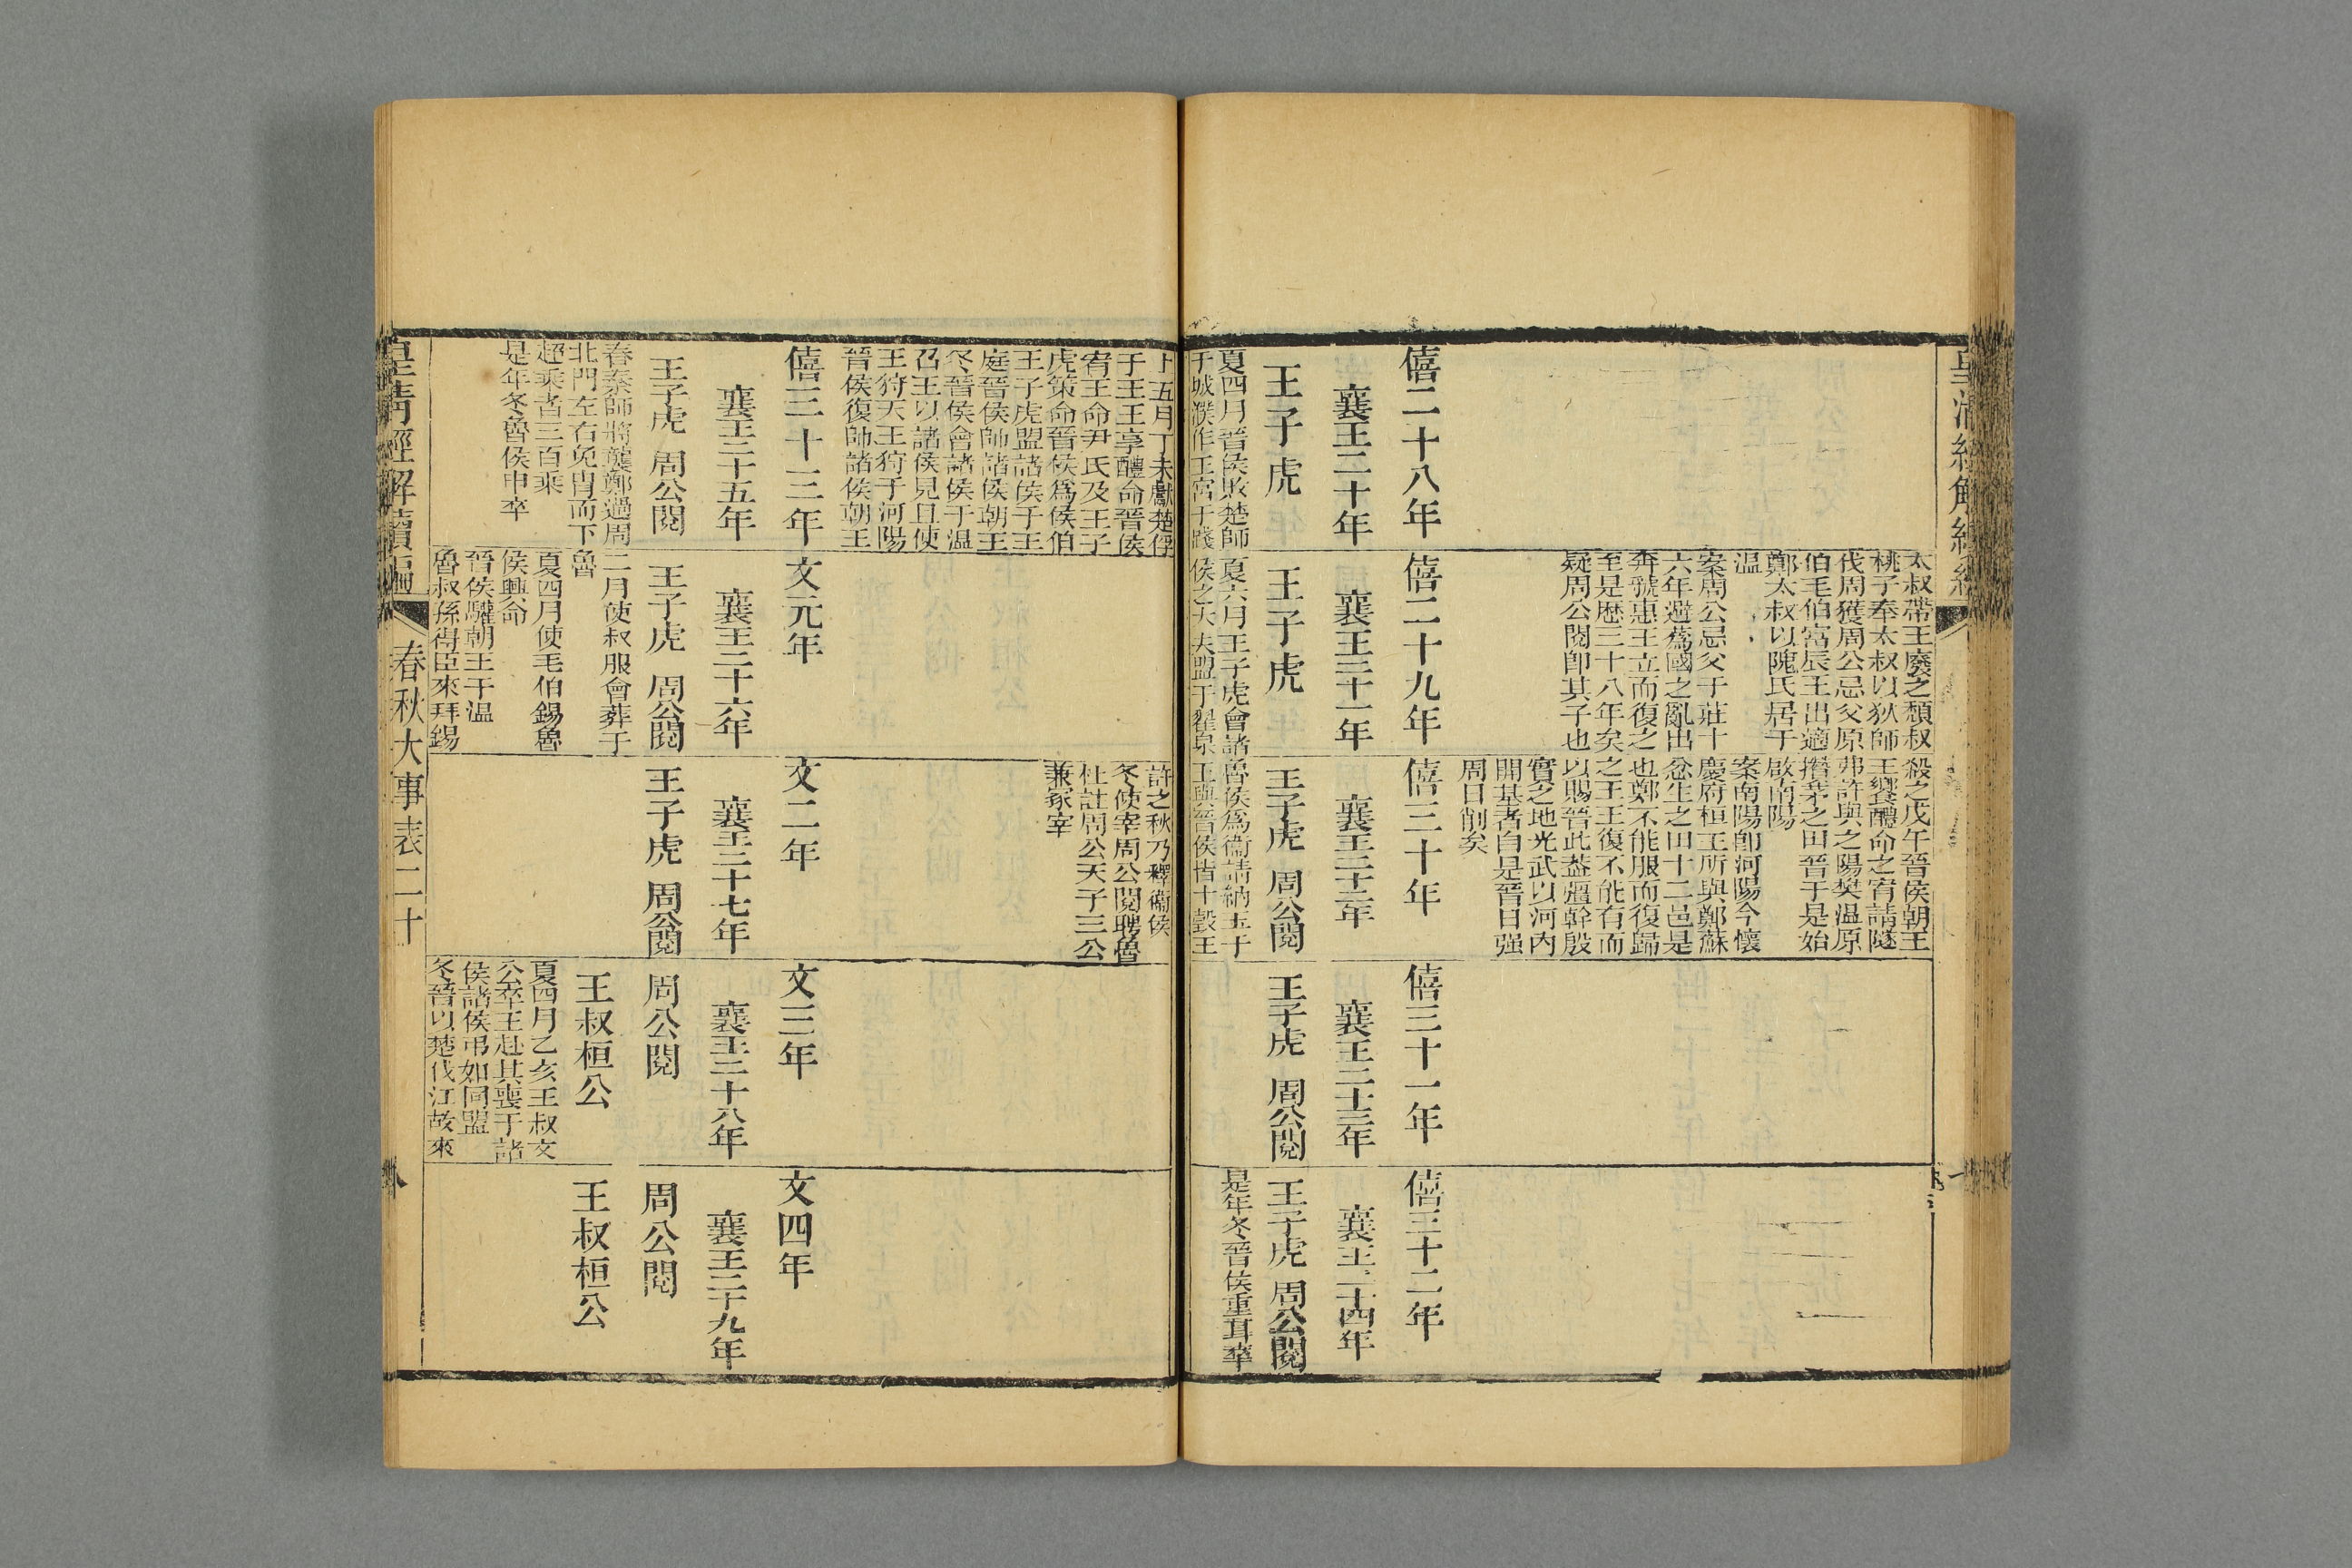 皇清經解續編
僖二十八年
襄王二十年
王子虎
夏四月晉侯敗楚師
于城濮作王宮于踐
太叔帶王廢之頹叔
桃子奉太叔以狄師
伐周獲周公忌父原
伯毛伯富辰王出適
鄭太叔以隗氏居于
温
案周公忌父于莊十
六年避蒍國之亂出
奔虢惠王立而復之
至是歷三十八年矣
疑周公閱卽其子也
僖二十九年
襄王二十一年
王子虎
夏六月王子虎會諸
侯之大夫盟于翟泉
殺之戊午晉侯朝王
王饗醴命之宥請隧
弗許與之陽樊温原
攢茅之田晉于是始
啟南陽
案南陽卽河陽今懷
慶府桓王所與鄭蘇
忿生之田十二邑是
也鄭不能服而復歸
之王王復不能有而
以賜晉此葢疆幹殷
實之地光武以河内
開基者自是晉日强
周日削矣
僖三十年
襄王二十二年
王子虎 周公閱
魯侯爲衞請納玉于
王與晉侯皆十瑴王
僖三十一年
襄王二十三年
王子虎 周公閱
僖三十二年
襄王二十四年
王子虎 周公閱
是年冬晉侯重耳卒
土五月丁未獻楚俘
于王王享醴命晉侯
宥王命尹氏及王子
虎策命晉侯爲侯伯
王子虎盟諸侯于王
庭晉侯帥諸侯朝王
冬晉侯會諸侯于温
召王以諸侯見且使
王狩天王狩于河陽
晉侯復帥諸侯朝王
僖三十三年
襄王二十五年
王子虎 周公閱
春秦師將襲鄭過周
北門左右免胄而下
超乘者三百乘
是年冬魯侯申卒
文元年
襄王二十六年
王子虎 周公閱
二月使叔服會葬于
魯
夏四月使毛伯錫魯
侯興命
晉侯驩朝王于温
魯叔孫得臣來拜錫
許之秋乃釋衞侯
冬使宰周公閱聘魯
杜註周公天子三公
兼冢宰
文二年
襄王二十七年
王子虎 周公閱
文三年
襄王二十八年
周公閱
王叔桓公
夏四月乙亥王叔文
公卒王赴其喪于諸
侯諸侯弔如同盟
冬晉以楚伐江故來
文四年
襄王二十九年
周公閱
王叔桓公
皇清經解續編 春秋大事表二十 八